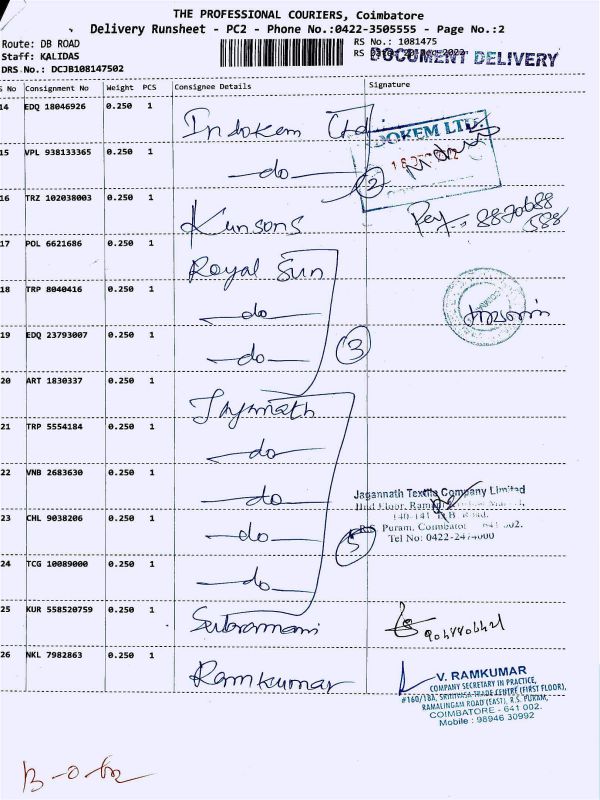 THE PROFESSIONAL COURIERS, Coimbatore
Delivery Runsheet - PC2 - Phone No.:0422-3505555 - Page No.:2
Route: DB ROAD
Staff: KALIDAS
DRS No.: DCJB108147502
RS No.: 1081475
RS
DOCUMENT DELIVERY
S No Consignment No Weight PCS Consignee Details Signature
14 EDQ 18046926 0.250 1 Indokem Ltd
DOKEM LTD.
15 VPL 938133365 0.250 1 —do—
2
16 TRZ 102038003 0.250 1 Kunsons
17 POL 6621686 0.250 1 Royal Sun
18 TRP 8040416 0.250 1 —do—
19 EDQ 23793007 0.250 1 —do—
3
20 ART 1830337 0.250 1 Jagannath
21 TRP 5554184 0.250 1 —do—
22 VNB 2683630 0.250 1 —do—
Jagannath Textile Company Limited
23 CHL 9038206 0.250 1 —do—
R.S. Puram, Coimbatore 641 002.
Tel No: 0422-2474000
5
24 TCG 10089000 0.250 1 —do—
25 KUR 558520759 0.250 1 Subramani
26 NKL 7982863 0.250 1 Ramkumar
V. RAMKUMAR
COMPANY SECRETARY IN PRACTICE,
#160/18A, SRINIVASA TRADE CENTRE (FIRST FLOOR),
RAMALINGAM ROAD (EAST), R.S. PURAM,
COIMBATORE - 641 002.
Mobile : 98946 30992